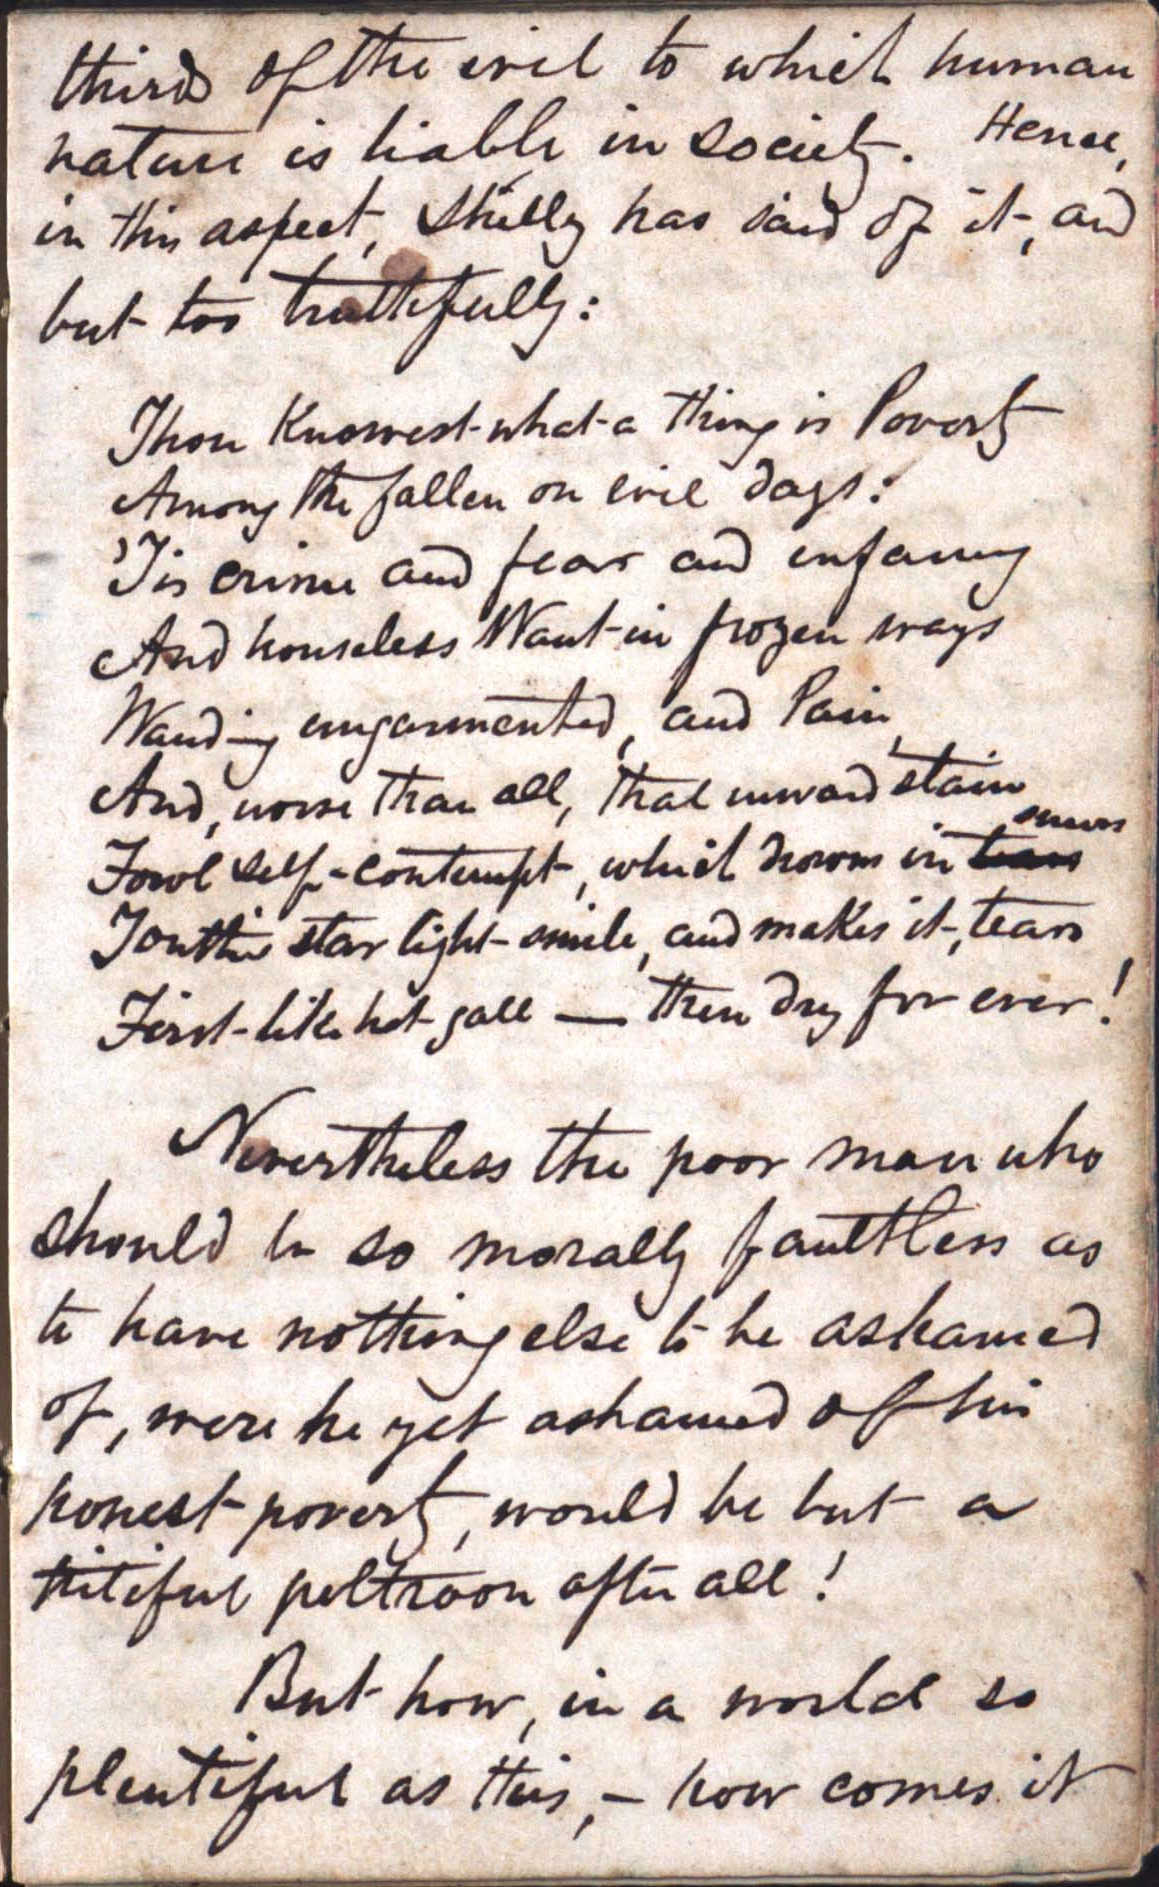 thirds of the evil to which human
nature is liable in society. Hence,
in this aspect, Shelley has said of it, and
but too truthfully:
Thou Knowest what a thing is Poverty
Among the fallen on evil days:
'Tis crime and fear and infamy
And houseless Want in frozen ways
Wand-ing ungarmented, and Pain,
And, worse than all, that inward stain
Fowl self-contempt, which drowns in tears sneers
Youth's star light smile, and makes it, tears
First like hot gall — then dry for ever!
Nevertheless the poor man who
should be so morally faultless as
to have nothing else to be ashamed
of, were he yet ashamed of his
honest poverty, would be but a
pitiful poltroon after all!
But how, in a world so
plentiful as this, – how comes it